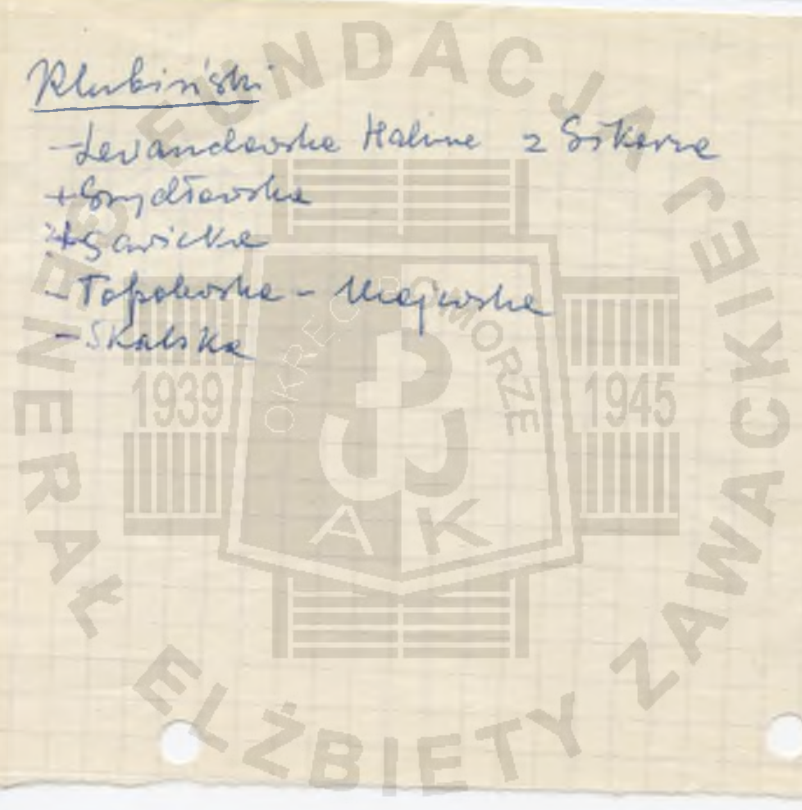 Klubiński
- Lewandowska Halina z Sikorza
+ Grydłowska
+ Sawicka
- Topolewska - Majewska
- Skalska
FUNDACJA GENERAŁ ELŻBIETY ZAWACKIEJ
OKRĘG POMORZE
1939 1945
AK